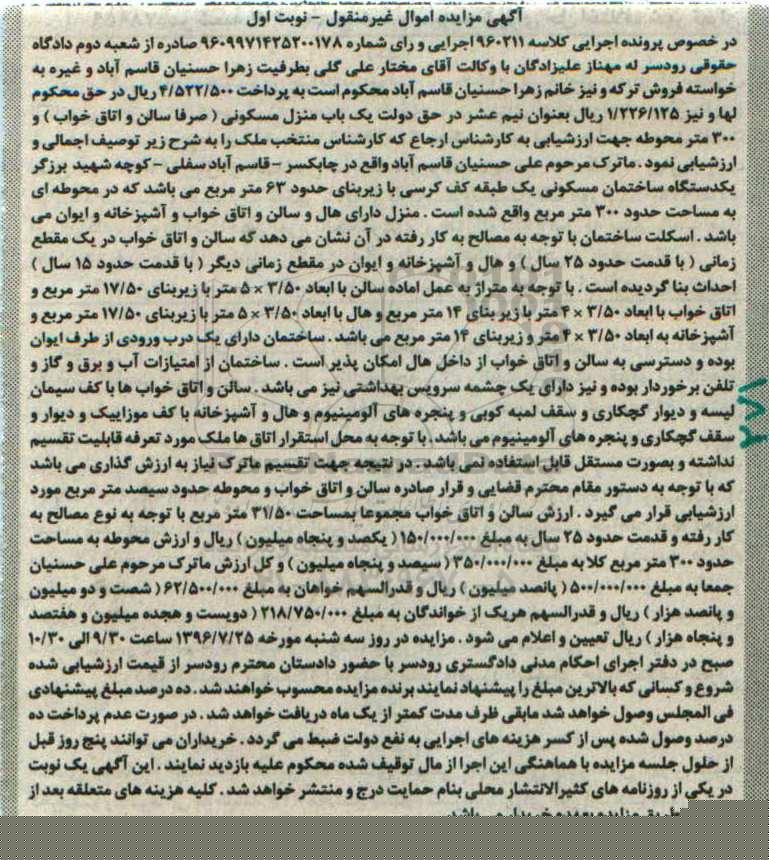 آگهی مزایده اموال غیرمنقول - نوبت اول
در خصوص پرونده اجرایی کلاسه ۹۶۰۲۱۱ اجرایی و رای شماره ۹۶۰۹۹۷۱۴۲۵۲۰۰۱۷۸ صادره از شعبه دوم دادگاه
حقوقی رودسر له مهناز علیزادگان با وکالت آقای مختار علی گلی بطرفیت زهرا حسنیان قاسم آباد و غیره به
خواسته فروش ترکه و نیز خانم زهرا حسنیان قاسم آباد محکوم است به پرداخت ۴/۵۲۲/۵۰۰ ریال در حق محکوم
لها و نیز ۱/۲۲۶/۱۲۵ ریال بعنوان نیم عشر در حق دولت یک باب منزل مسکونی ( صرفا سالن و اتاق خواب ) و
۳۰۰ متر محوطه جهت ارزشیابی به کارشناس ارجاع که کارشناس منتخب ملک را به شرح زیر توصیف اجمالی و
ارزشیابی نمود . ماترک مرحوم علی حسنیان قاسم آباد واقع در چابکسر - قاسم آباد سفلی - کوچه شهید برزگر
یکدستگاه ساختمان مسکونی یک طبقه کف کرسی با زیربنای حدود ۶۳ متر مربع می باشد که در محوطه ای
به مساحت حدود ۳۰۰ متر مربع واقع شده است . منزل دارای هال و سالن و اتاق خواب و آشپزخانه و ایوان می
باشد . اسکلت ساختمان با توجه به مصالح به کار رفته در آن نشان می دهد که سالن و اتاق خواب در یک مقطع
زمانی ( با قدمت حدود ۲۵ سال ) و هال و آشپزخانه و ایوان در مقطع زمانی دیگر ( با قدمت حدود ۱۵ سال )
احداث بنا گردیده است . با توجه به متراژ به عمل آماده سالن با ابعاد ۳/۵۰ × ۵ متر با زیربنای ۱۷/۵۰ متر مربع و
اتاق خواب با ابعاد ۳/۵۰ × ۴ متر با زیر بنای ۱۴ متر مربع و هال با ابعاد ۳/۵۰ × ۵ متر با زیربنای ۱۷/۵۰ متر مربع و
آشپزخانه به ابعاد ۳/۵۰ × ۴ متر و زیربنای ۱۴ متر مربع می باشد . ساختمان دارای یک درب ورودی از طرف ایوان
بوده و دسترسی به سالن و اتاق خواب از داخل هال امکان پذیر است . ساختمان از امتیازات آب و برق و گاز و
تلفن برخوردار بوده و نیز دارای یک چشمه سرویس بهداشتی نیز می باشد . سالن و اتاق خواب ها با کف سیمان
لیسه و دیوار گچکاری و سقف لمبه کوبی و پنجره های آلومینیوم و هال و آشپزخانه با کف موزاییک و دیوار و
سقف گچکاری و پنجره های آلومینیوم می باشد . با توجه به محل استقرار اتاق ها ملک مورد تعرفه قابلیت تقسیم
نداشته و بصورت مستقل قابل استفاده نمی باشد . در نتیجه جهت تقسیم ماترک نیاز به ارزش گذاری می باشد
که با توجه به دستور مقام محترم قضایی و قرار صادره سالن و اتاق خواب و محوطه حدود سیصد متر مربع مورد
ارزشیابی قرار می گیرد . ارزش سالن و اتاق خواب مجموعا بمساحت ۳۱/۵۰ متر مربع با توجه به نوع مصالح به
کار رفته و قدمت حدود ۲۵ سال به مبلغ ۱۵۰/۰۰۰/۰۰۰ ( یکصد و پنجاه میلیون ) ریال و ارزش محوطه به مساحت
حدود ۳۰۰ متر مربع کلا به مبلغ ۳۵۰/۰۰۰/۰۰۰ ( سیصد و پنجاه میلیون ) و کل ارزش ماترک مرحوم علی حسنیان
جمعا به مبلغ ۵۰۰/۰۰۰/۰۰۰ ( پانصد میلیون ) ریال و قدرالسهم خواهان به مبلغ ۶۲/۵۰۰/۰۰۰ ( شصت و دو میلیون
و پانصد هزار ) ریال و قدرالسهم هریک از خواندگان به مبلغ ۲۱۸/۷۵۰/۰۰۰ ( دویست و هجده میلیون و هفتصد
و پنجاه هزار ) ریال تعیین و اعلام می شود . مزایده در روز سه شنبه مورخه ۱۳۹۶/۷/۲۵ ساعت ۹/۳۰ الی ۱۰/۳۰
صبح در دفتر اجرای احکام مدنی دادگستری رودسر با حضور دادستان محترم رودسر از قیمت ارزشیابی شده
شروع و کسانی که بالاترین مبلغ را پیشنهاد نمایند برنده مزایده محسوب خواهند شد . ده درصد مبلغ پیشنهادی
فی المجلس وصول خواهد شد مابقی ظرف مدت کمتر از یک ماه دریافت خواهد شد . در صورت عدم پرداخت ده
درصد وصول شده پس از کسر هزینه های اجرایی به نفع دولت ضبط می گردد . خریداران می توانند پنج روز قبل
از حلول جلسه مزایده با هماهنگی این اجرا از مال توقیف شده محکوم علیه بازدید نمایند . این آگهی یک نوبت
در یکی از روزنامه های کثیرالانتشار محلی بنام حمایت درج و منتشر خواهد شد . کلیه هزینه های متعلقه بعد از
طریق مزایده بعهده خریدار می باشد.
۲۷۸۱